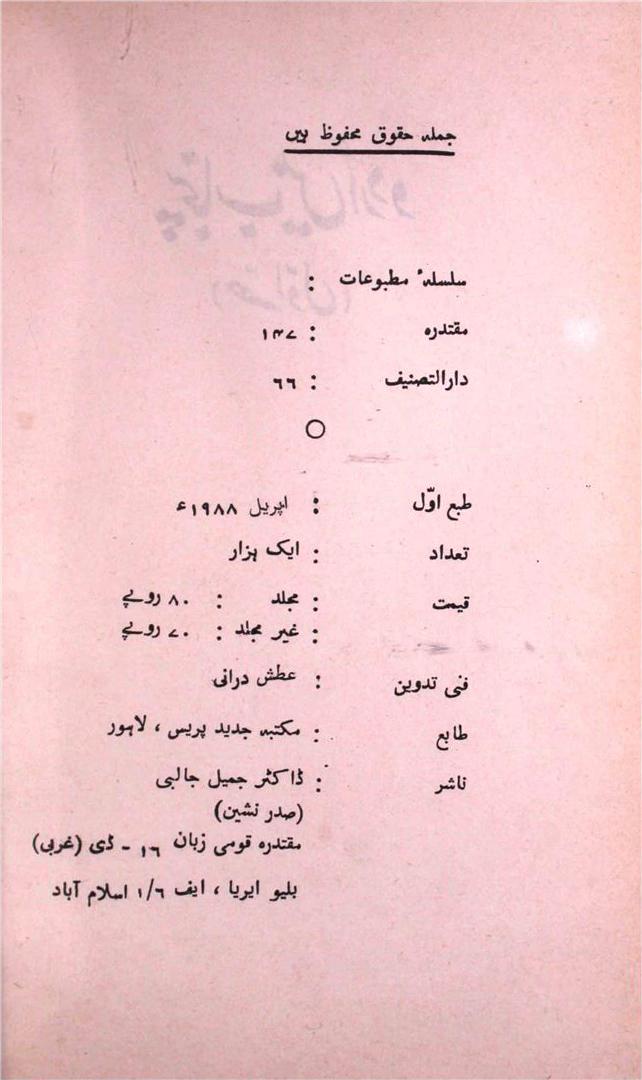 جملہ حقوق محفوظ ہیں
سلسلۂ مطبوعات :
مقتدرہ : ۱۴۷
دارالتصنیف : ۶۶
طبع اوّل : اپریل ۱۹۸۸ء
تعداد : ایک ہزار
قیمت : مجلد : ۸۰ روپے
: غیر مجلد : ۷۰ روپے
فنی تدوین : عطش درانی
طابع : مکتبہ جدید پریس ، لاہور
ناشر : ڈاکٹر جمیل جالبی
(صدر نشین)
مقتدرہ قومی زبان ۱۶ - ڈی (غربی)
بلیو ایریا ، ایف ۱/۶ اسلام آباد